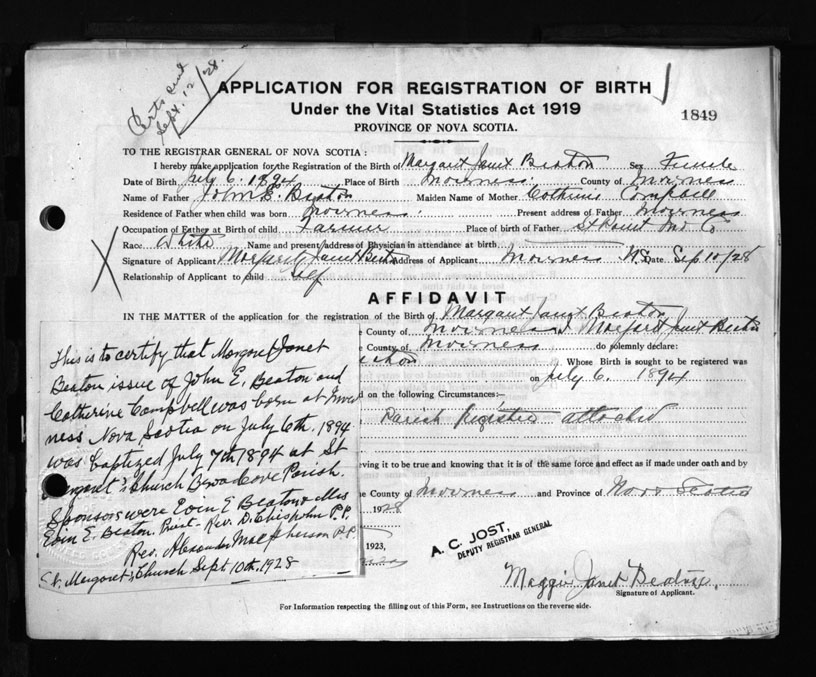 Certs sent
Sept. 12/28.
APPLICATION FOR REGISTRATION OF BIRTH
Under the Vital Statistics Act 1919
PROVINCE OF NOVA SCOTIA.
1849
TO THE REGISTRAR GENERAL OF NOVA SCOTIA:
I hereby make application for the Registration of the Birth of Margaret Janet Beaton Sex Female
Date of Birth July 6. 1894 Place of Birth Inverness. County of Inverness
Name of Father John E. Beaton Maiden Name of Mother Catherine Campbell
Residence of Father when child was born Inverness. Present address of Father Inverness
Occupation of Father at Birth of child Farmer Place of birth of Father
Race White Name and present address of Physician in attendance at birth
Signature of Applicant Margaret Janet Beaton Address of Applicant Inverness N.S. Date Sep 10/28
Relationship of Applicant to child Self
AFFIDAVIT
IN THE MATTER of the application for the registration of Birth of Margaret Janet Beaton
e County of Inverness I Margaret Janet Beaton
e County of Inverness do solemnly declare:
Beaton. Whose Birth is sought to be registered was
on July 6. 1894
d on the following Circumstances:—
Parish Register attached
eving it to be true and knowing that it is of the same force and effect as if made under oath and by
e County of Inverness and Province of Nova Scotia
1928
A. C. JOST,
DEPUTY REGISTRAR GENERAL
1923,
Maggie Janet Beaton.
Signature of Applicant.
For Information respecting the filling out of this Form, see Instructions on the reverse side.
This is to certify that Margaret Janet
Beaton issue of John E. Beaton and
Catherine Campbell was born at Inver
ness Nova Scotia on July 6th. 1894
was Baptized July 7th 1894 at St
Margaret's Church Broad Cove Parish.
Sponsors were Evin E Beaton & Mrs
Evin E. Beaton. Priest - Rev. D. Chisholm P.P.
Rev. Alexander MacPherson P.P.
St. Margaret's Church Sept 10th. 1928